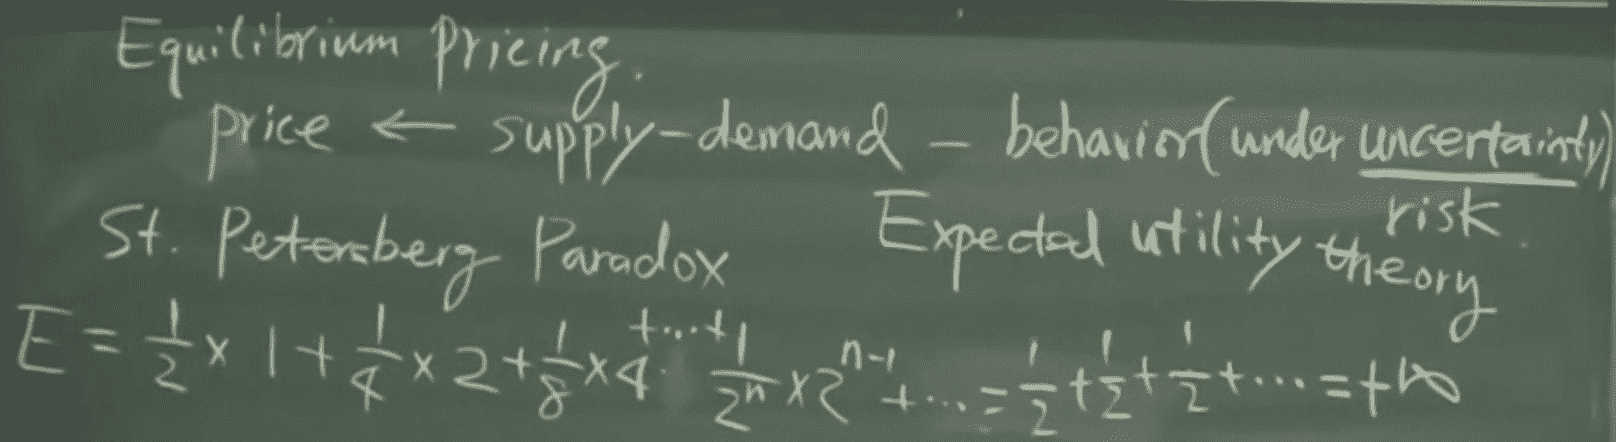 Equilibrium Pricing.
price ← supply-demand - behavior(under uncertainty)
risk
St. Petersberg Paradox Expected utility theory
E = 1/2 × 1 + 1/4 × 2 + 1/8 × 4 + ... + 1/2^n × 2^(n-1) + ... = 1/2 + 1/2 + 1/2 + ... = +∞